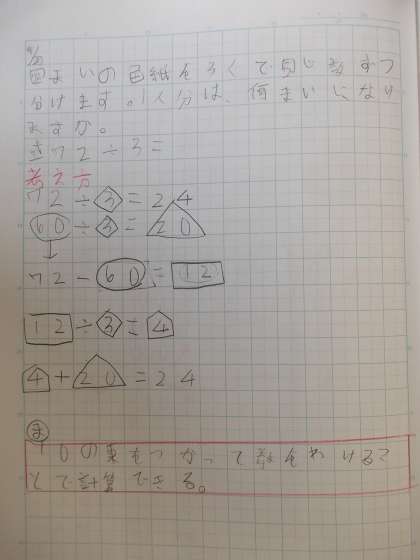 9/20
まいの色紙を3人で同じ数ずつ
分けます。1人分は、何まいにな
ますか。
式72÷3=
考え方
72÷3=24
60÷3=20
72-60=12
12÷3=4
4+20=24
ま
10の束をつかって数をわけるこ
とで計算できる。